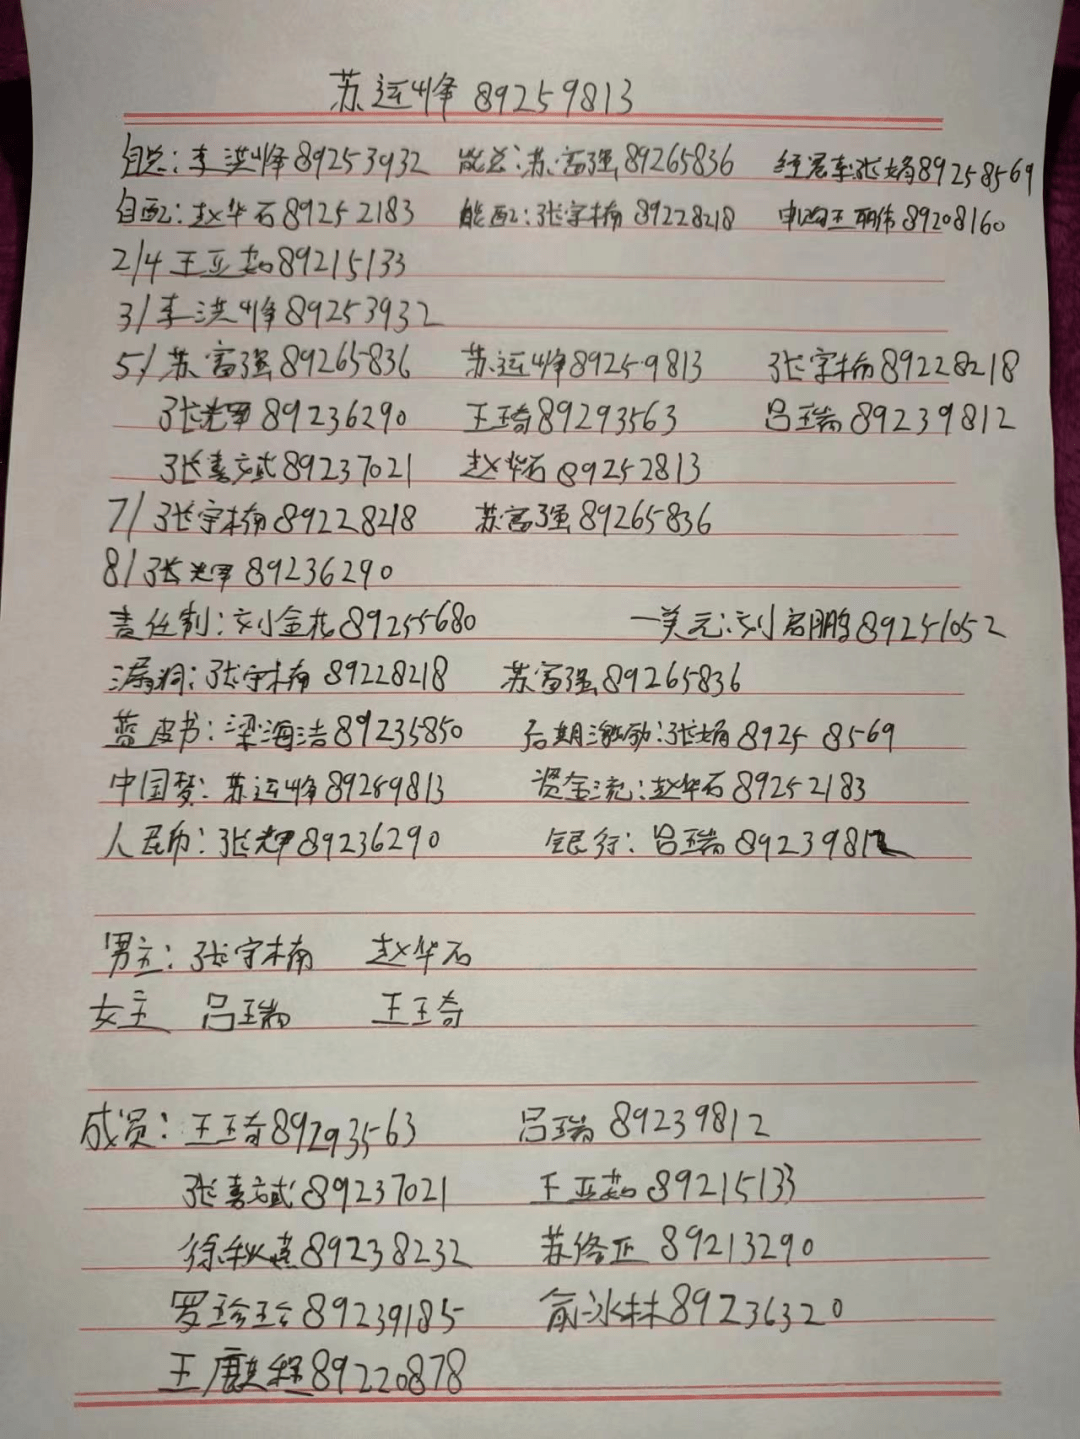 苏运峰 89259813
自总:李洪峰89253932 能总:苏富强89265836 经宏车张娟89258569
自配:赵华石89252183 能配:张宇楠89228218 申购王丽伟89208160
2/4 王亚茹89215133
3/李洪峰89253932
5/苏富强89265836 苏运峰89259813 张宇楠89228218
张光军89236290 王琦89293563 吕瑞89239812
张喜斌89237021 赵华石89252813
7/张宇楠89228218 苏富强89265836
8/张光军89236290
责任制:刘金花89255680 一美元:刘启鹏89251052
漏洞:张宇楠89228218 苏富强89265836
蓝皮书:梁海洁89235850 后期激励:张娟89258569
中国梦:苏运峰89259813 资金流:赵华石89252183
人民币:张光军89236290 银行:吕瑞89239812
男主:张宇楠 赵华石
女主 吕瑞 王琦
成员:王琦89293563 吕瑞89239812
张喜斌89237021 王亚茹89215133
徐秋燕89238232 苏修正89213290
罗珍珍89239185 俞冰林89236320
王 程89220878